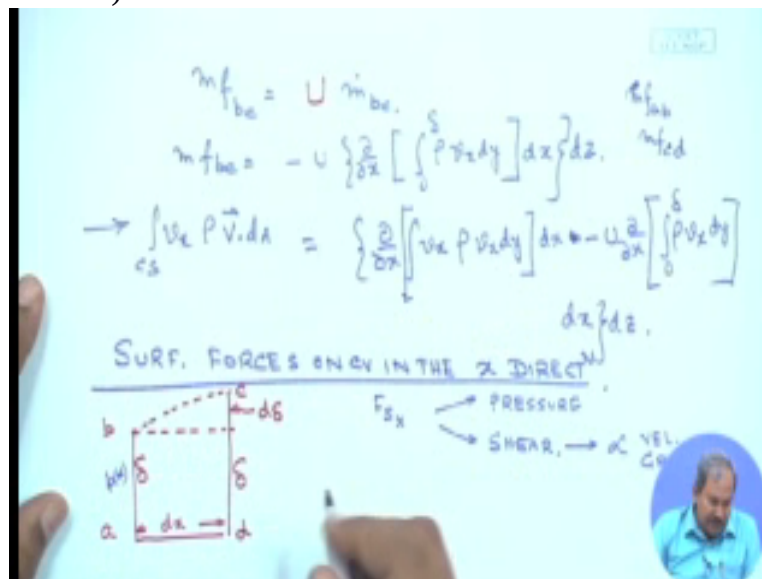 mf_bc = U ṁ_bc.
mf_ab
mf_bc = - U {∂/∂x [∫_0^δ ρ v_x dy] dx} dz.
mf_cd
→ ∫_cs v_x ρ V⃗.dA = {∂/∂x [∫ v_x ρ v_x dy] dx - U ∂/∂x [∫_0^δ ρ v_x dy]
dx} dz.
SURF. FORCES ON CV IN THE x DIRECTN.
c
dδ
F_sx → PRESSURE
b
→ SHEAR, → ∝ VEL.
δ δ
a dx d